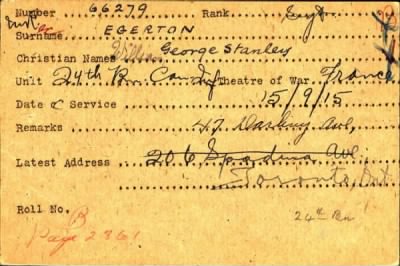 Number 66279 Rank
Surname EGERTON
Christian Names William George Stanley
Unit 24th Bn. Can. Inf Theatre of War France
Date of Service 15/9/15
Remarks 47 Ave,
Latest Address 206 Spadina Ave
Toronto Ont
Roll No. B
Page 2361
24th Bn